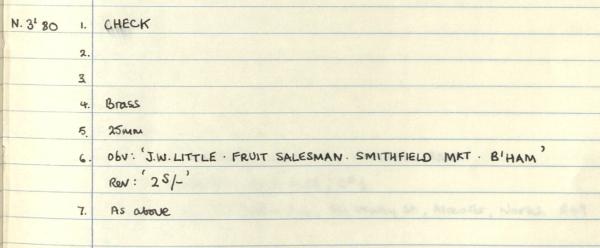 N. 3' 80 1. CHECK
2.
3
4. Brass
5. 25mm
6. Obv: 'J.W. LITTLE · FRUIT SALESMAN · SMITHFIELD MKT · B'HAM'
Rev: '2S/-'
7. As above